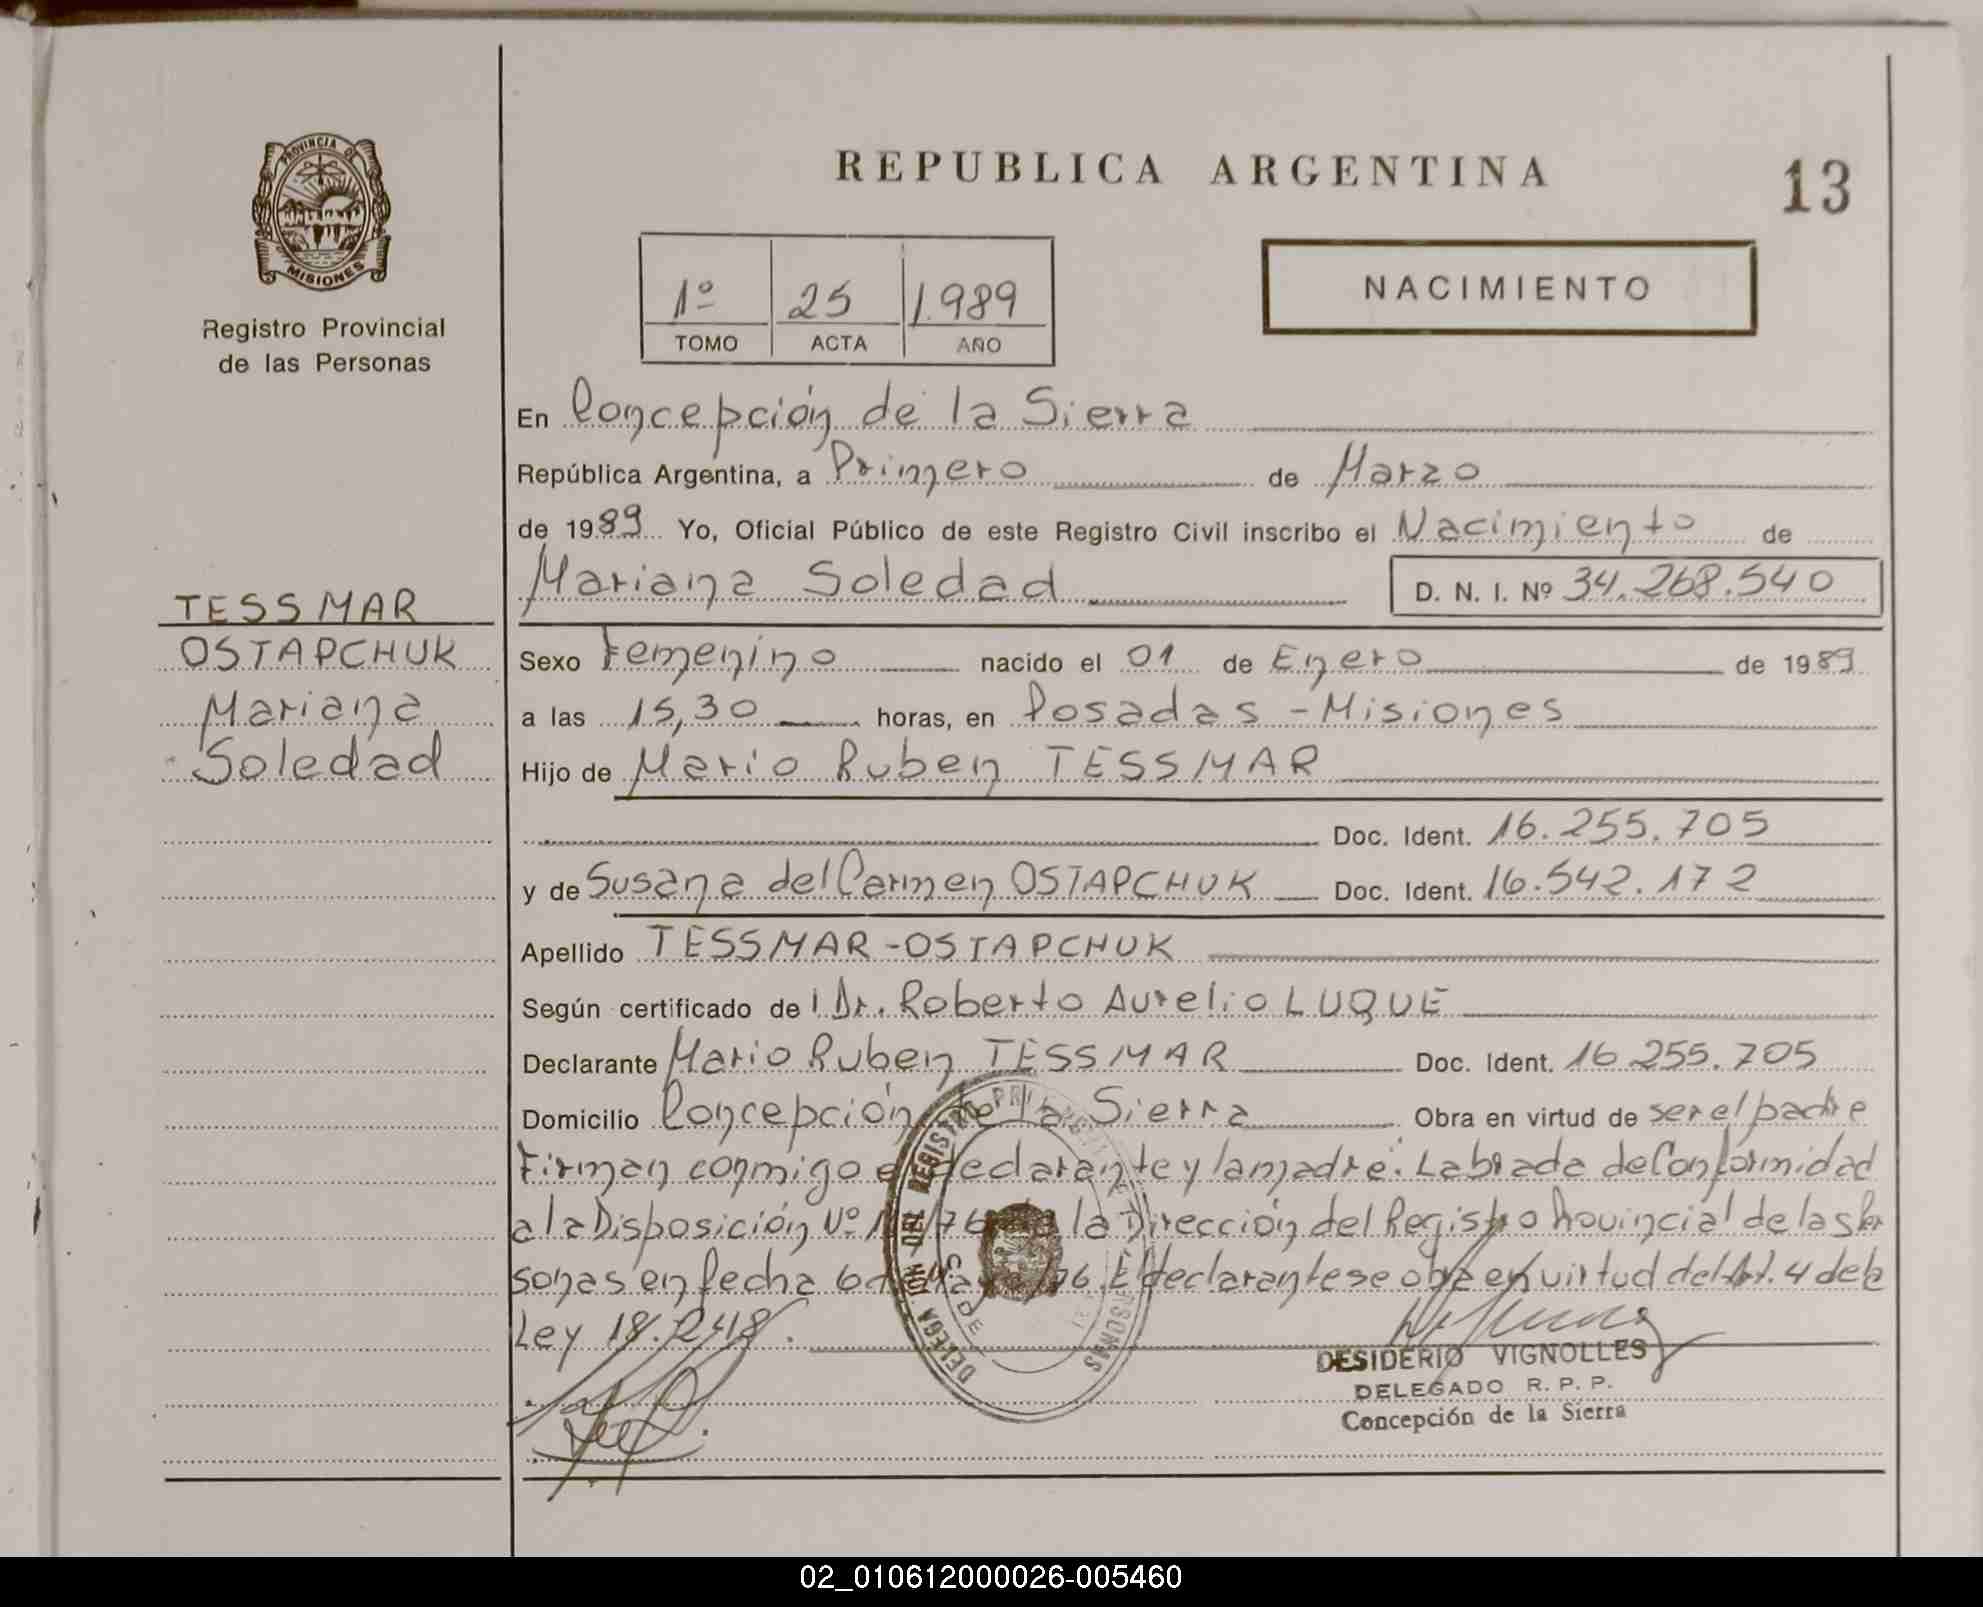 PROVINCIA DE
MISIONES
Registro Provincial
de las Personas
TESSMAR
OSTAPCHUK
Mariana
Soledad
REPUBLICA ARGENTINA
13
1º 25 1.989
TOMO ACTA AÑO
NACIMIENTO
En Concepción de la Sierra
República Argentina, a Primero de Marzo
de 1989 Yo, Oficial Público de este Registro Civil inscribo el Nacimiento de
Mariana Soledad D. N. I. Nº 34.268.540
Sexo Femenino nacido el 01 de Enero de 1989
a las 15,30 horas, en Posadas - Misiones
Hijo de Mario Ruben TESSMAR
Doc. Ident. 16.255.705
y de Susana del Carmen OSTAPCHUK Doc. Ident. 16.542.172
Apellido TESSMAR-OSTAPCHUK
Según certificado de l Dr. Roberto Aurelio LUQUE
Declarante Mario Ruben TESSMAR Doc. Ident. 16.255.705
Domicilio Concepción de la Sierra Obra en virtud de ser el padre
Firman conmigo el declarante y la madre. Labrada de Conformidad
a la Disposición Nº /76 la Dirección del Registro Provincial de las Per
sonas en fecha 6 76. El declarante se obra en virtud del Art. 4 de la
Ley 18.248.
DELEGACION DEL REGISTRO PERSONAS
DESIDERIO VIGNOLLES
DELEGADO R. P. P.
Concepción de la Sierra
02_010612000026-005460